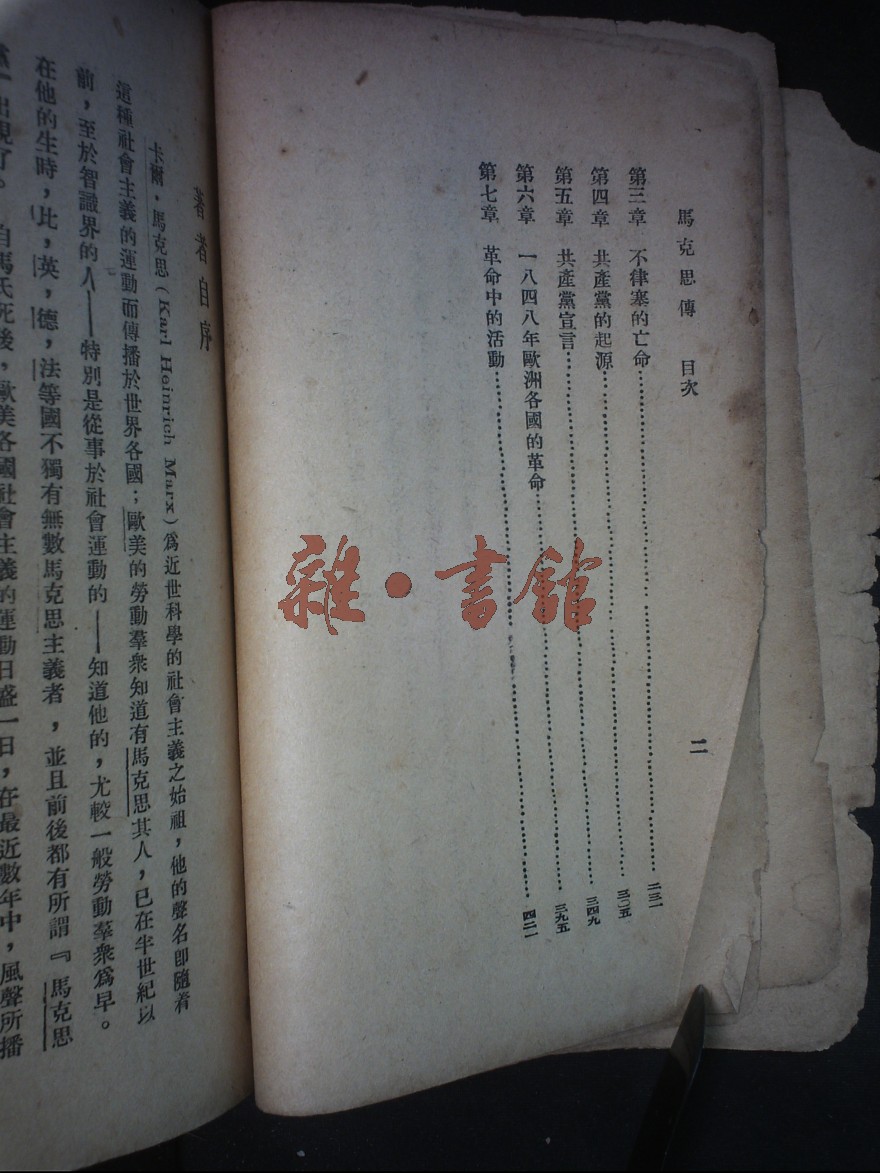 馬克思傳 目次 二
第三章 不律塞的亡命……二三一
第四章 共產黨的起源……三〇五
第五章 共產黨宣言……三四九
第六章 一八四八年歐洲各國的革命……三九五
第七章 革命中的活動……四二一
雜·書館
著者自序
卡爾·馬克思(Karl Heinrich Marx)爲近世科學的社會主義之始祖,他的聲名卽隨着
這種社會主義的運動而傳播於世界各國;歐美的勞動羣衆知道有馬克思其人,已在半世紀以
前,至於智識界的人——特別是從事於社會運動的——知道他的,尤較一般勞動羣衆爲早。
在他的生時,比,英,德,法等國不獨有無數馬克思主義者,並且前後都有所謂『馬克思
出現了。自馬氏死後,歐美各國社會主義的運動日盛一日,在最近數年中,風聲所播